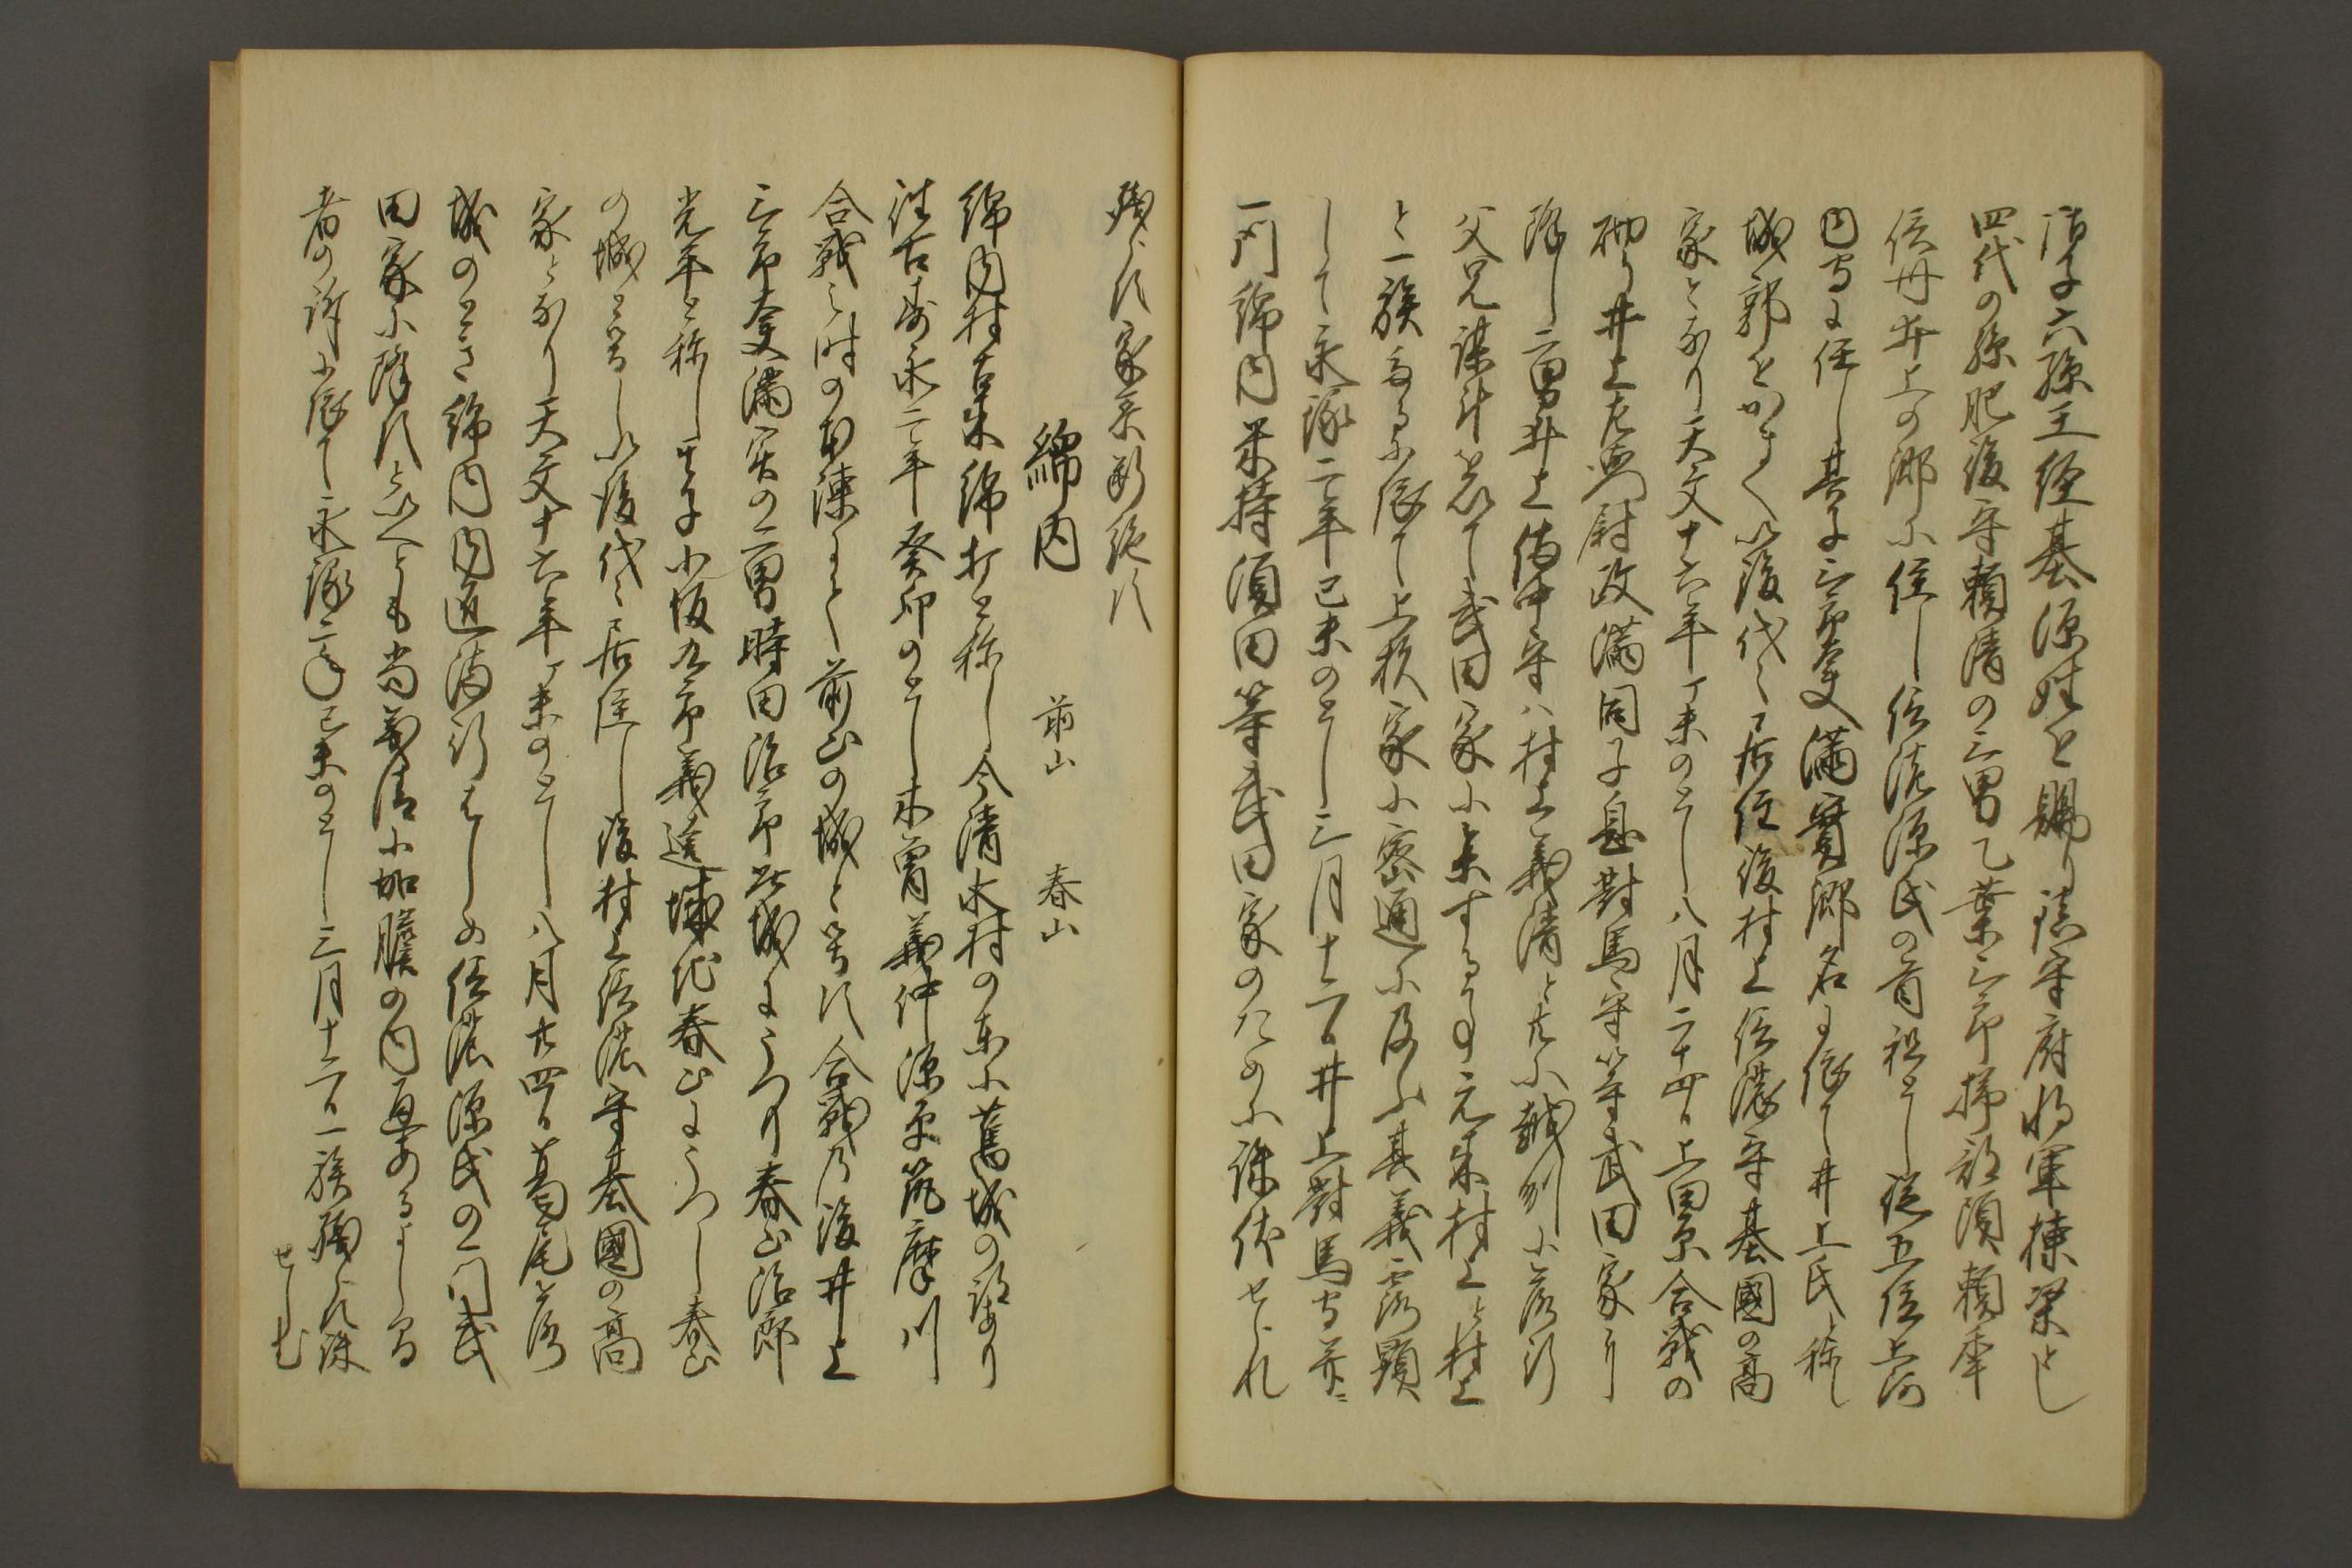 御子六孫王経基源姓を賜り鎮守府将軍棟梁とし
四代の孫肥後守頼清の三男乙葉三郎掃部頭頼季
信州井上の郷に住し信濃源氏の首祖とし従五位上河
内守に任し其子三郎太夫満實郷名に依て井上氏と称し
城郭をかまへ以後代々居住後村上信濃守基國の高
家となり天文十六年丁未のとし八月二十四日上田原合戦の
砌り井上左衛門尉政満同子息對馬守等武田家に
降し二男井上備中守ハ村上義清と共に越列に落行
父兄謀斗を以て武田家に来する事元来村上と村上
と一族なるに依て上杦家に密通に及ふ其義露顕
して永禄二年己未のとし三月十六日井上對馬守并ニ
一門綿内米持須田等武田家のために誅伐せられ
残らす家系断絶す
綿内 前山 春山
綿内村古来綿打と称し今清水村の東に舊城の跡あり
往古寿永二年癸卯のとし木曽義仲源平筑摩川
合戦之時の出陳にて前山の城と号す合戦乃後井上
三郎太夫満実の二男時田治郎此城にうつり春山治郎
光平と称し其子小坂九郎義遠城地春山にうつし春山
の城と号し以後代々居住し後村上信濃守基國の高
家となり天文十六年丁未のとし八月廿四日葛尾を落
城のとき綿内内匠満行はしめ信濃源氏の一门武
田家に降すといへとも尚義清に加膽の内通あるよし聞
者の訴に依て永禄二年己未のとし三月十六日一族残らす誅
せしむ